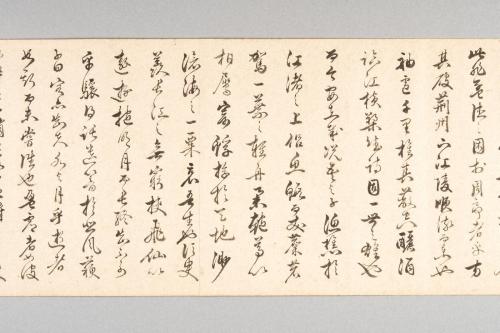 此非孟德之困於周郎者乎方
其破荊州下江陵順流而東也
舳艫千里旌旗蔽空釃酒
臨江橫槊賦詩固一世之雄也
而今安在哉況吾與子漁樵於
江渚之上侶魚蝦而友麋鹿
駕一葉之輕舟舉匏尊以
相屬寄蜉蝣於天地渺
滄海之一粟哀吾生之須臾
羨長江之無窮挾飛仙以
遨遊抱明月而長終知不可
乎驟得託遺響於悲風蘇
子曰客亦知夫水與月乎逝者
如斯而未嘗往也盈虛者如彼